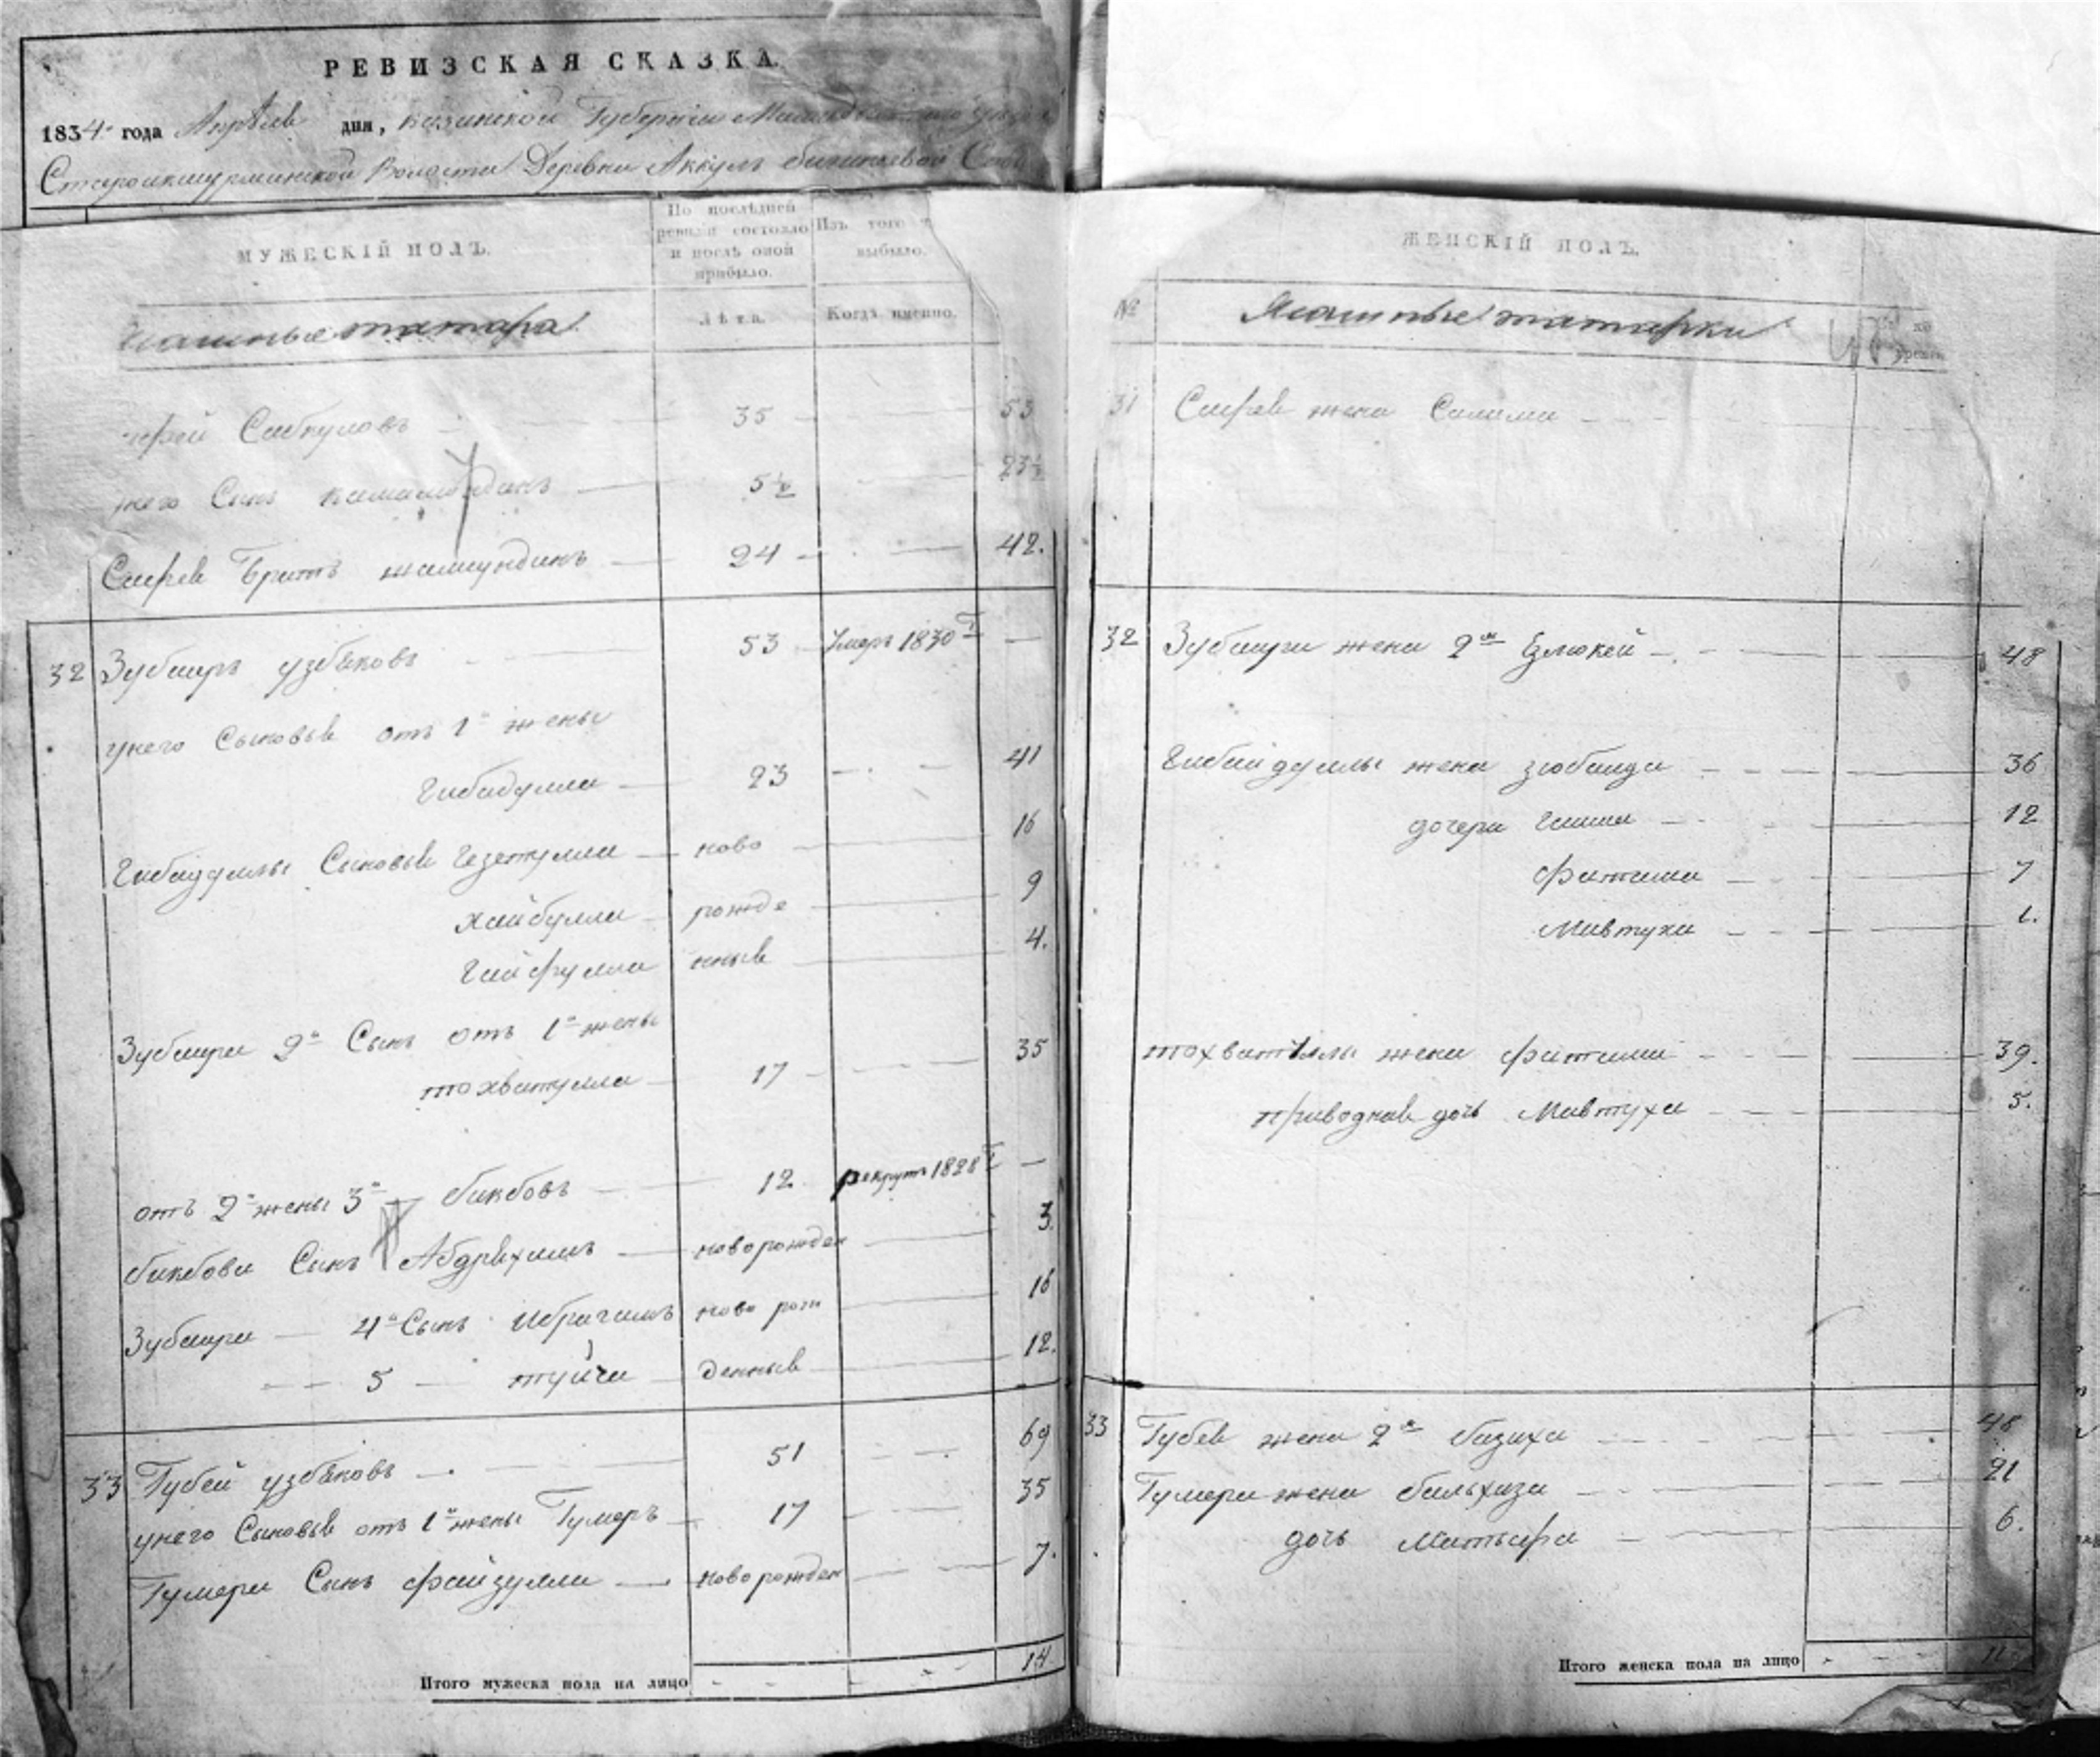 РЕВИЗСКАЯ СКАЗКА.
1834 года Апреля дня, Казанской Губернии Мамадышского уезда
Староикшурминской Волости Деревни Аккуль
МУЖЕСКІЙ ПОЛЪ.
По последней ревизіи состояло и после оной прибыло.
Изъ того выбыло.
Лѣта.
Когда именно.
Ясашные татара
Сабкуловъ 35 53
у него Сынъ 5½ 23½
Саfея Братъ жамлундинъ 24 42.
32 Зубаиръ узбяковъ 53 Умеръ 1830 —
у него Сыновья отъ 1й жены
Гибадулла 23 41
Гибадуллы Сыновья Гезетулла ново 16
Хайбулла рожде 9
Гайфулла нныя 4.
Зубаира 2й Сынъ отъ 1й жены
тохватулла 17 35
отъ 2й жены 3й бикбовъ 12 рекрутъ 1828 —
бикбова Сынъ Абдряхимъ новорожден 3.
Зубаира — 4й Сынъ Ибрагимъ ново рож 16
5 — туйги денныя 12.
33 Губей узбяковъ 51 69
у него Сыновья отъ 1й жены Гумеръ 17 35
Гумера Сынъ файзулла новорожден 7.
Итого мужеска пола на лицо 14.
ЖЕНСКІЙ ПОЛЪ.
№
Ясашные татарки
31 жена Салима
32 Зубаира жена 2я Езлюкей 48
Гибайдуллы жена зюбаида 36
дочери Гаиша 12
Фатима 7
Мавтуха 1.
тохватуллы жена фатима 39.
приводная дочь Мавтуха 5.
33 Губея жена 2я базиха 48
Гумера жена бальхиза 21
дочь 6.
Итого женска пола на лицо 11